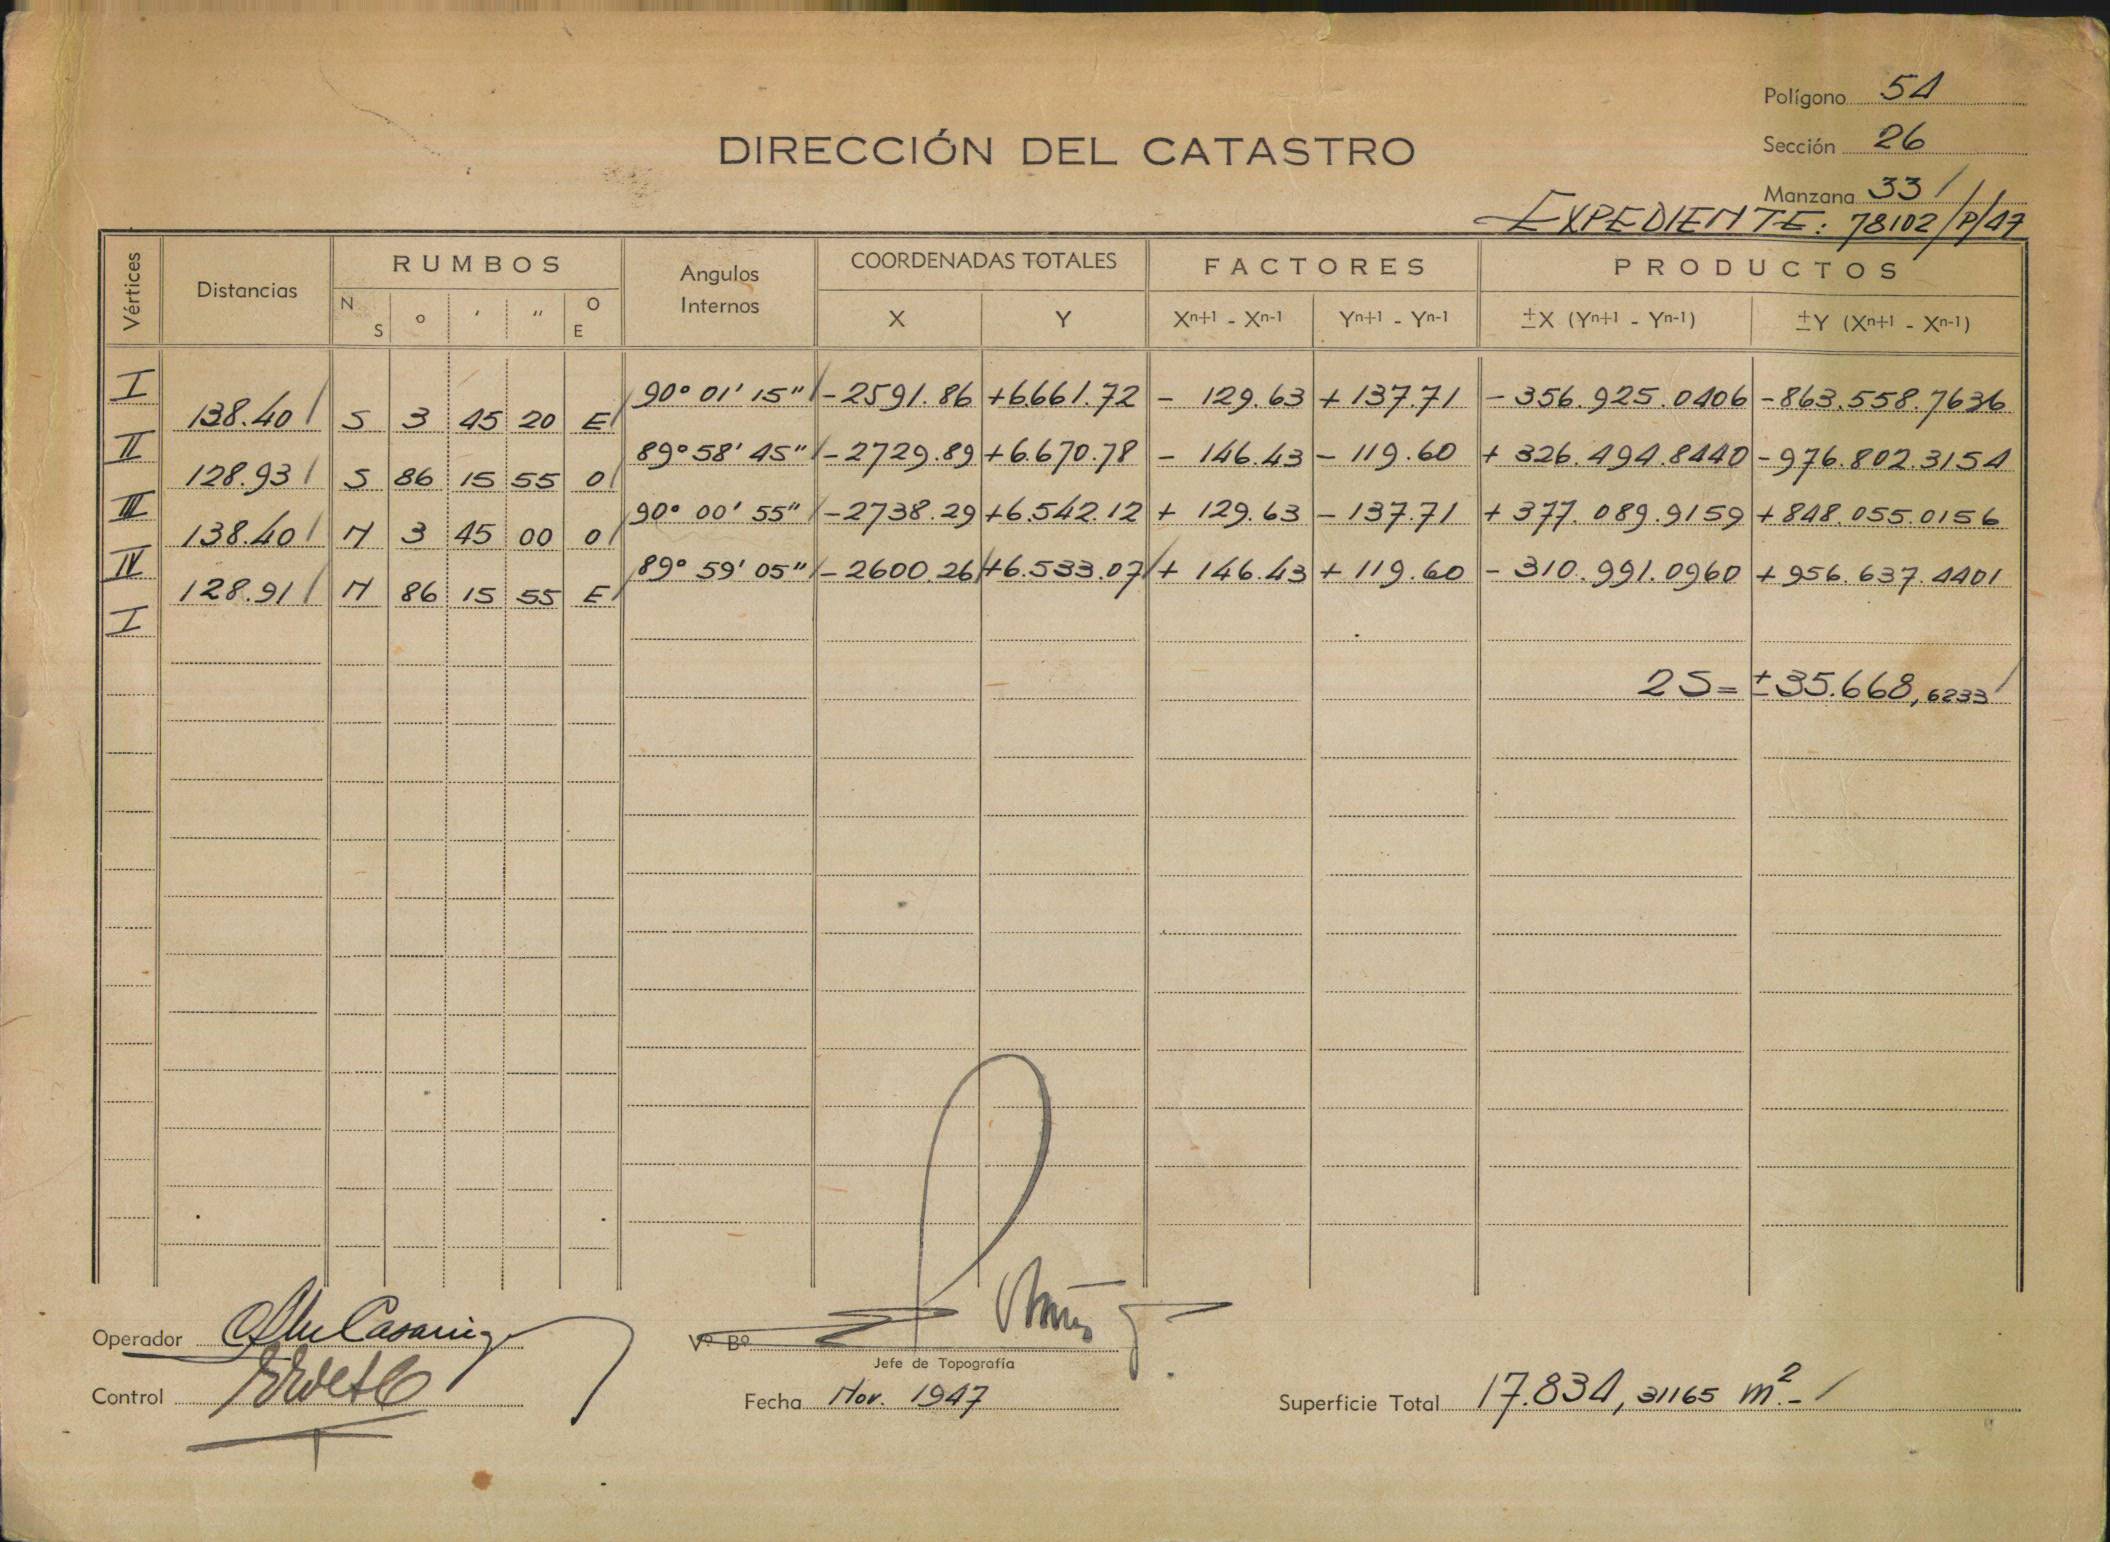 Polígono 54
DIRECCIÓN DEL CATASTRO
Sección 26
Manzana 33
EXPEDIENTE: 78102/P/47
Vértices Distancias RUMBOS Angulos Internos COORDENADAS TOTALES FACTORES PRODUCTOS
N S o ' " O E X Y Xn+1 - Xn-1 Yn+1 - Yn-1 ±X (Yn+1 - Yn-1) ±Y (Xn+1 - Xn-1)
I 90° 01' 15" -2591.86 +6.661.72 - 129.63 + 137.71 - 356.925.0406 -863.558.7636
138.40 S 3 45 20 E
II 89° 58' 45" -2729.89 +6.670.78 - 146.43 - 119.60 + 326.494.8440 -976.802.3154
128.93 S 86 15 55 O
III 90° 00' 55" -2738.29 +6.542.12 + 129.63 - 137.71 + 377.089.9159 +848.055.0156
138.40 N 3 45 00 O
IV 89° 59' 05" -2600.26 +6.533.07 + 146.43 + 119.60 - 310.991.0960 +956.637.4401
128.91 N 86 15 55 E
I
2S= ±35.668,6233
Operador
Vº Bº
Jefe de Topografía
Control
Fecha Nov. 1947
Superficie Total 17.834,31165 m².-